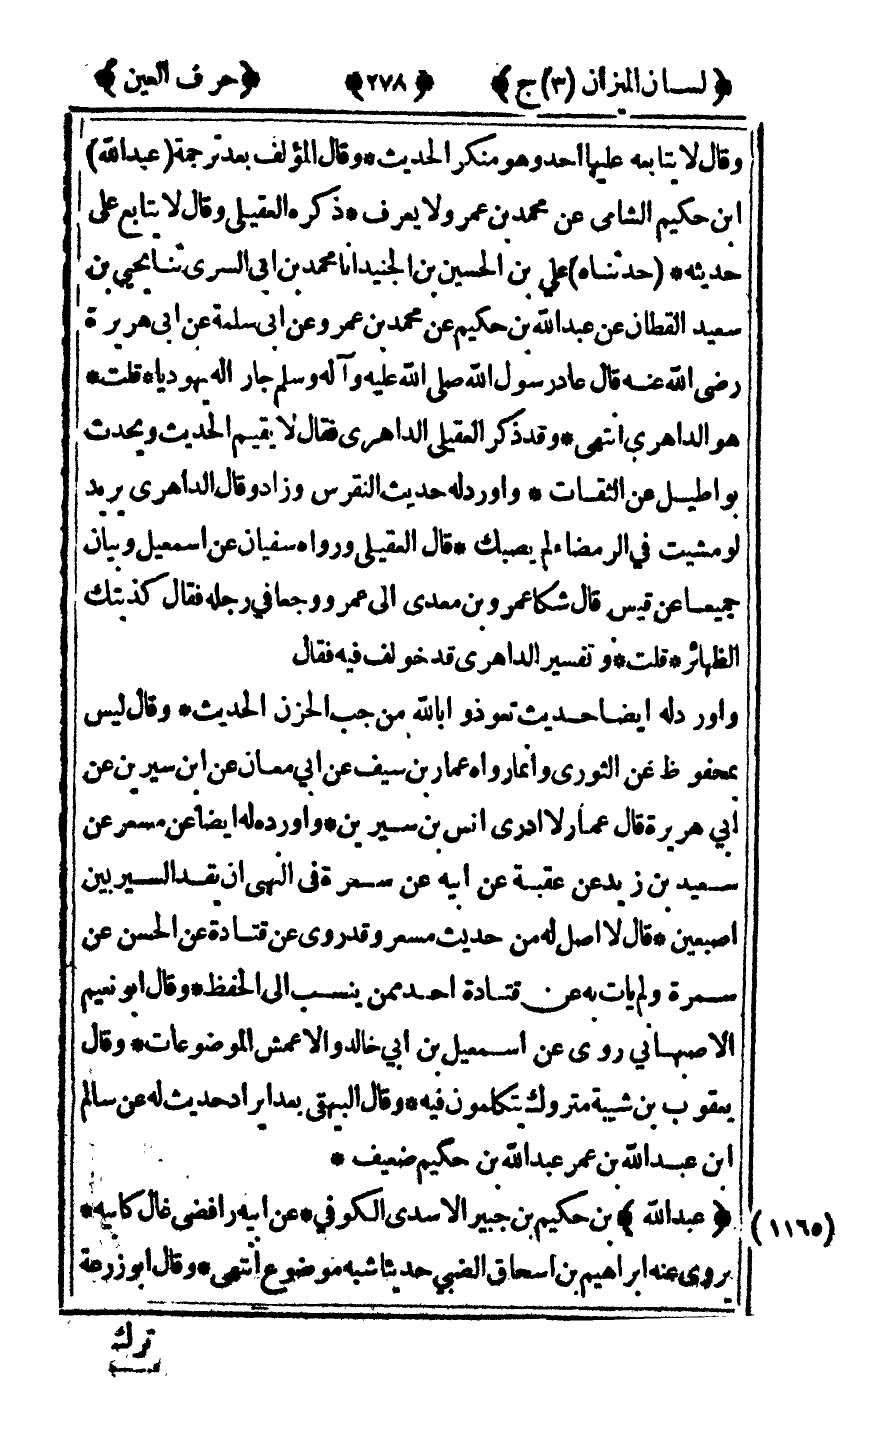 ﴿ لسان الميزان (٣) ج ﴾ ﴿ ٢٧٨ ﴾ ﴿ حرف العين ﴾
وقال لا يتابعه عليها احد وهو منكر الحديث * وقال المؤلف بعد ترجمة (عبدالله)
ابن حكيم الشامى عن محمد بن عمر ولا يعرف * ذكره العقيلى وقال لا يتابع على
حديثه * (حدثناه) علي بن الحسين بن الجنيد انا محمد بن ابى السرى ثنا يحيى بن
سعيد القطان عن عبدالله بن حكيم عن محمد بن عمر وعن ابى سلمة عن ابى هريرة
رضى الله عنه قال عاد رسول الله صلى الله عليه وآله وسلم جارا له يهوديا * قلت *
هو الداهري انتهى * وقد ذكر العقيلى الداهرى فقال لا يقيم الحديث ويحدث
بواطيل عن الثقات * واورد له حديث النقرس وزاد وقال الداهرى يريد
لو مشيت في الرمضاء لم يصبك * قال العقيلى ورواه سفيان عن اسمعيل وبيان
جميعا عن قيس قال شكا عمرو بن معدى الى عمر ووجعا في رجله فقال كذبتك
الظهائر * قلت * وتفسير الداهرى قد خولف فيه فقال
واورد له ايضا حديث تعوذوا بالله من جب الحزن الحديث * وقال ليس
بمحفوظ عن الثورى وانما رواه عمار بن سيف عن ابي معان عن ابن سيرين عن
ابي هريرة قال عمار لا ادرى انس بن سيرين * واورده له ايضا عن مسعر عن
سعيد بن زيد عن عقبة عن ابيه عن سمرة فى النهى ان يقد السير بين
اصبعين * قال لا اصل له من حديث مسعر وقد روى عن قتادة عن الحسن عن
سمرة ولم يات به عن قتادة احد ممن ينسب الى الحفظ * وقال ابو نعيم
الاصبهاني روى عن اسمعيل بن ابي خالد والاعمش الموضوعات * وقال
يعقوب بن شيبة متروك يتكلمون فيه * وقال البيهقى بعد ايراد حديث له عن سالم
ابن عبدالله بن عمر عبدالله بن حكيم ضعيف *
﴿ عبدالله ﴾ بن حكيم بن جبير الاسدى الكوفي * عن ابيه رافضى غال كابيه * (١١٦٥)
يروى عنه ابراهيم بن اسحاق الضبي حديثا شبه موضوع انتهى * وقال ابو زرعة
ترك